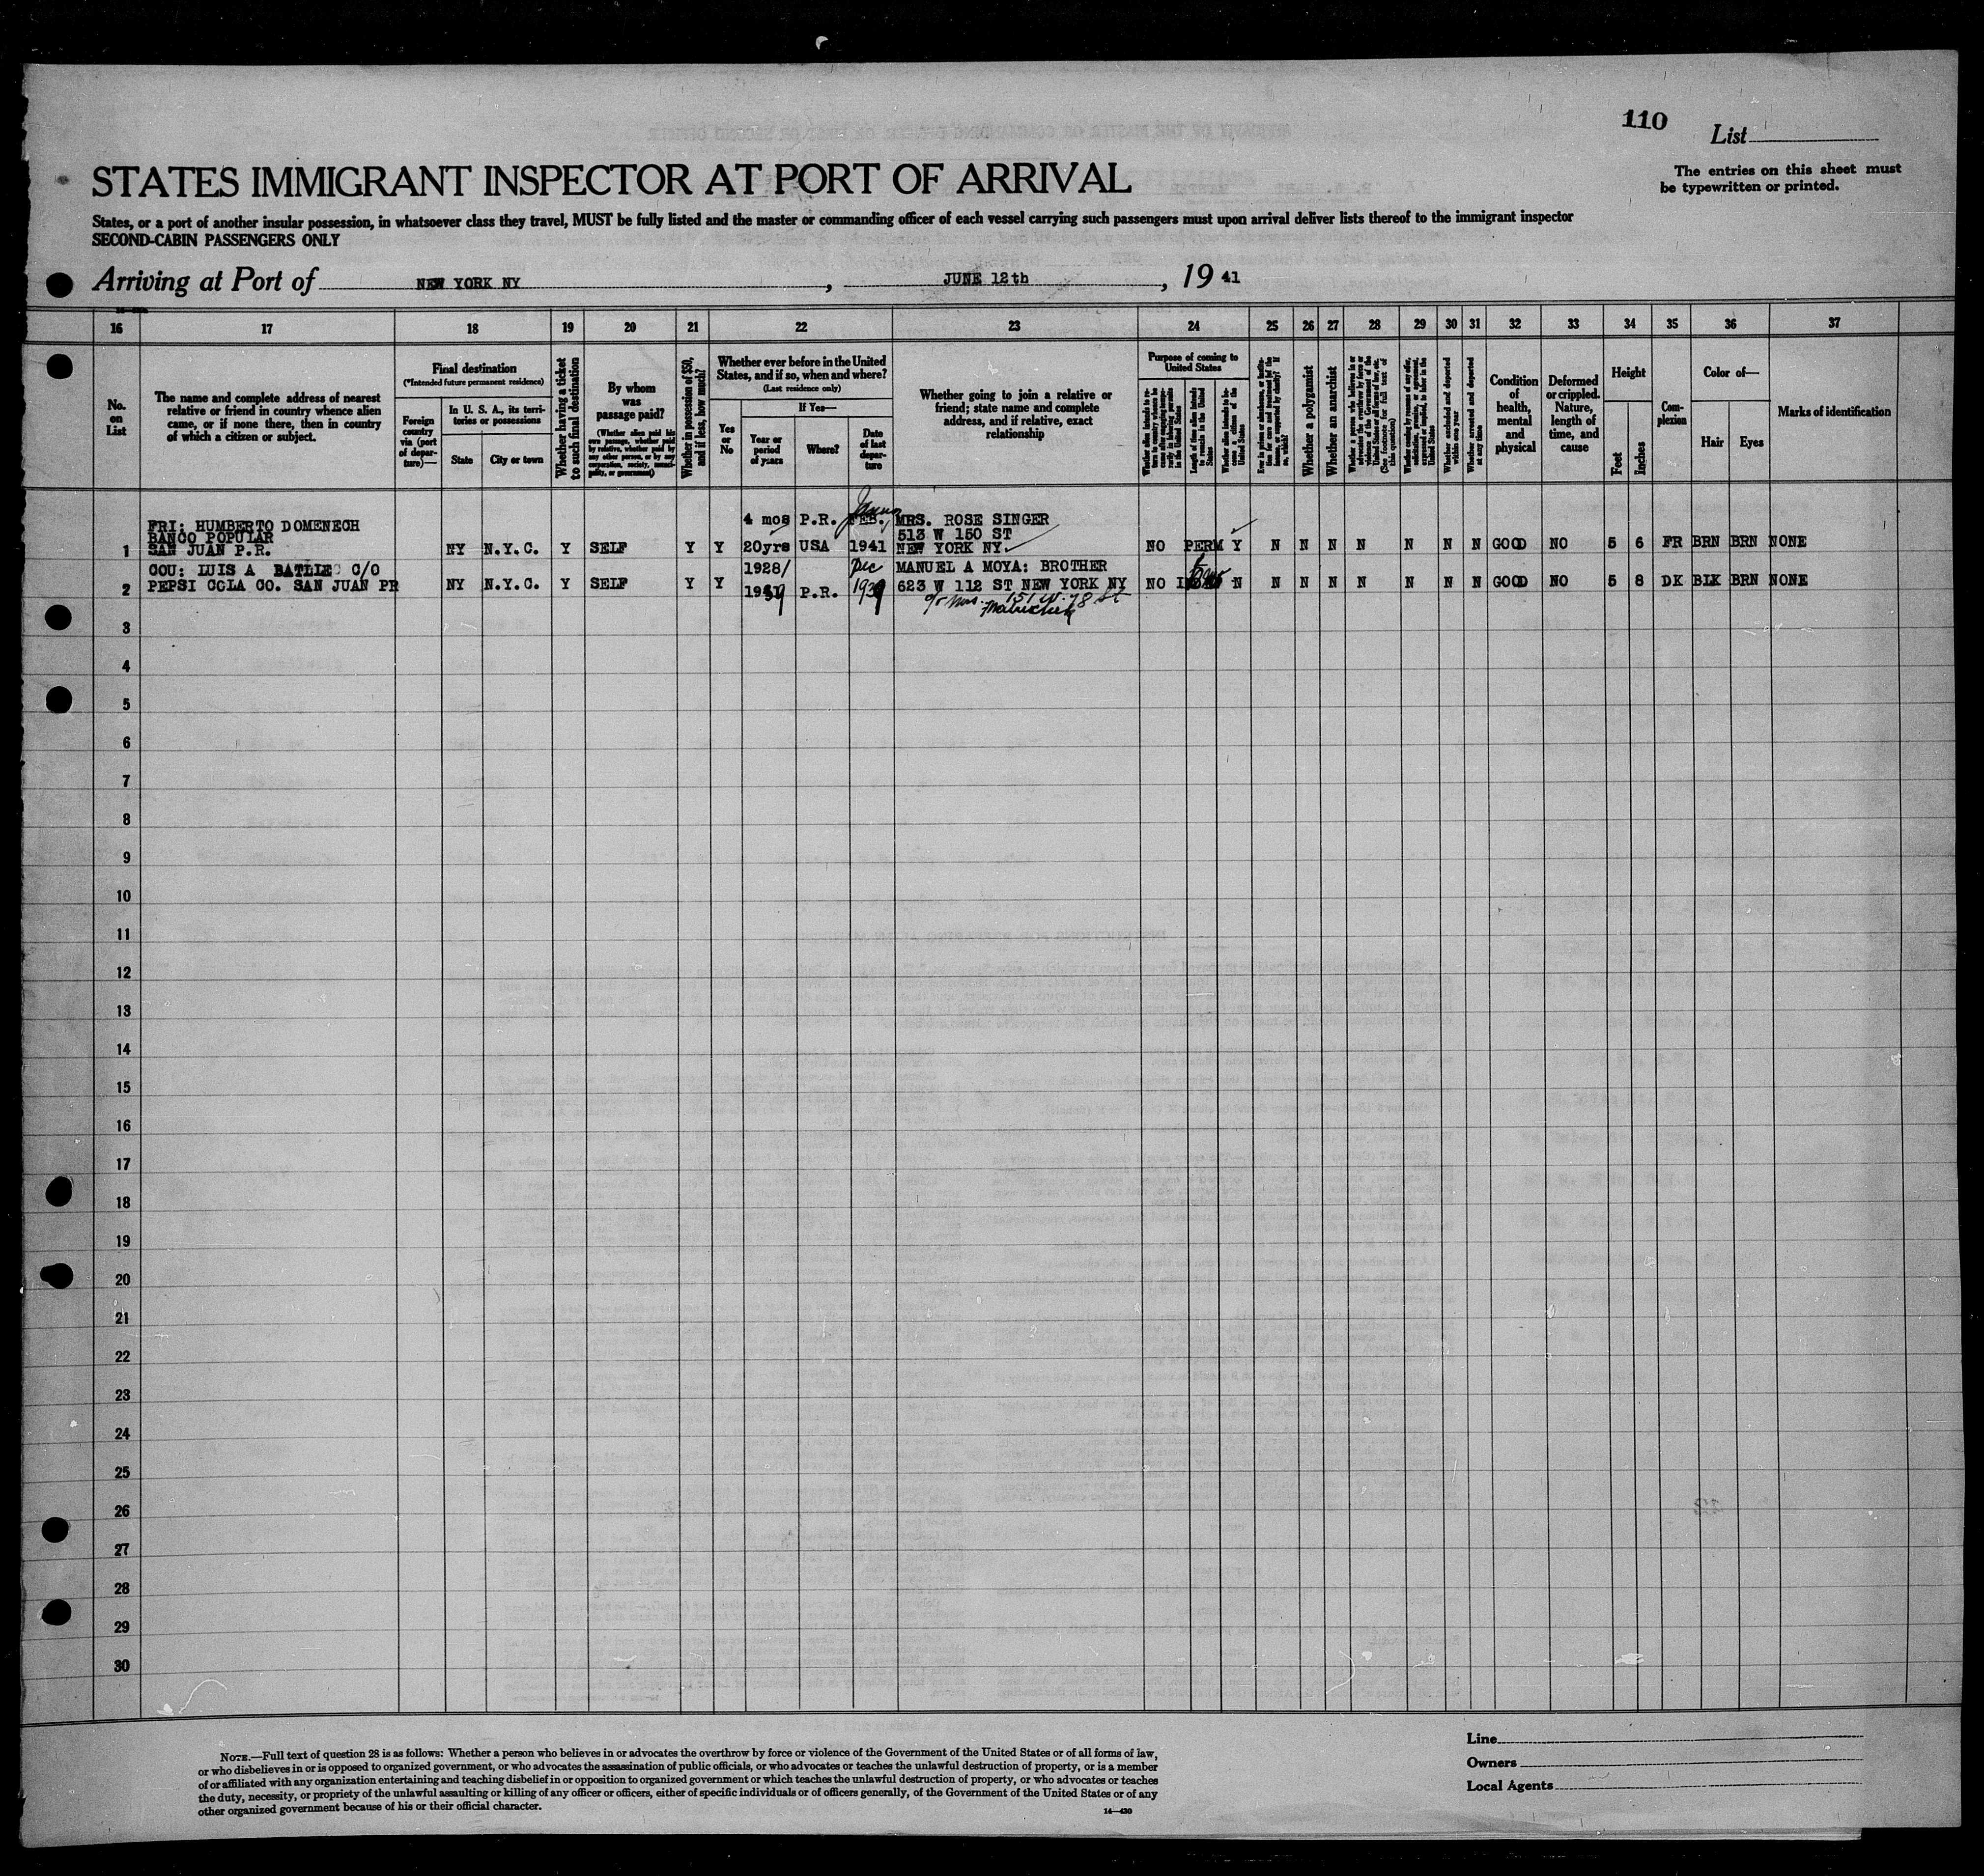 110 List
The entries on this sheet must
be typewritten or printed.
STATES IMMIGRANT INSPECTOR AT PORT OF ARRIVAL
States, or a port of another insular possession, in whatsoever class they travel, MUST be fully listed and the master or commanding officer of each vessel carrying such passengers must upon arrival deliver lists thereof to the immigrant inspector
SECOND-CABIN PASSENGERS ONLY
Arriving at Port of NEW YORK NY, JUNE 12th, 19 41
16 17 18 19 20 21 22 23 24 25 26 27 28 29 30 31 32 33 34 35 36 37
No.
on
List
The name and complete address of nearest
relative or friend in country whence alien
came, or if none there, then in country
of which a citizen or subject.
Final destination
(*Intended future permanent residence)
Foreign
country
via (port
of depar-
ture)—
In U. S. A., its terri-
tories or possessions
State
City or town
Whether having a ticket
to such final destination
By whom
was
passage paid?
(Whether alien paid his
own passage, whether paid
by relative, whether paid by
any other person, or by any
corporation, society, munici-
pality, or government)
Whether in possession of $50,
and if less, how much?
Whether ever before in the United
States, and if so, when and where?
(Last residence only)
Yes
or
No
If Yes—
Year or
period
of years
Where?
Date
of last
depar-
ture
Whether going to join a relative or
friend; state name and complete
address, and if relative, exact
relationship
Purpose of coming to
United States
Length of time alien intends
to remain in the United
States
Whether alien intends to be-
come a citizen of the
United States
Whether a polygamist
Whether an anarchist
(See footnote for full text of
this question)
Whether arrested and deported
at any time
Condition
of
health,
mental
and
physical
Deformed
or crippled.
Nature,
length of
time, and
cause
Height
Feet
Inches
Com-
plexion
Color of—
Hair
Eyes
Marks of identification
FRI: HUMBERTO DOMENECH 4 mos P.R. FEB. MRS. ROSE SINGER
BANCO POPULAR 513 W 150 ST
1 SAN JUAN P.R. NY N.Y.C. Y SELF Y Y 20yrs USA 1941 NEW YORK NY. NO PERM Y N N N N N N N GOOD NO 5 6 FR BRN BRN NONE
COU: LUIS A BATLLE C/O 1928/ Dec MANUEL A MOYA: BROTHER
2 PEPSI COLA CO. SAN JUAN PR NY N.Y.C. Y SELF Y Y P.R. 1939 623 W 112 ST NEW YORK NY NO N N N N N N N N GOOD NO 5 8 DK BLK BRN NONE
c/o Mrs. 151 W. 78 St
3
4
5
6
7
8
9
10
11
12
13
14
15
16
17
18
19
20
21
22
23
24
25
26
27
28
29
30
NOTE.—Full text of question 28 is as follows: Whether a person who believes in or advocates the overthrow by force or violence of the Government of the United States or of all forms of law,
or who disbelieves in or is opposed to organized government, or who advocates the assassination of public officials, or who advocates or teaches the unlawful destruction of property, or is a member
of or affiliated with any organization entertaining and teaching disbelief in or opposition to organized government or which teaches the unlawful destruction of property, or who advocates or teaches
the duty, necessity, or propriety of the unlawful assaulting or killing of any officer or officers, either of specific individuals or of officers generally, of the Government of the United States or of any
other organized government because of his or their official character.
14—430
Line
Owners
Local Agents